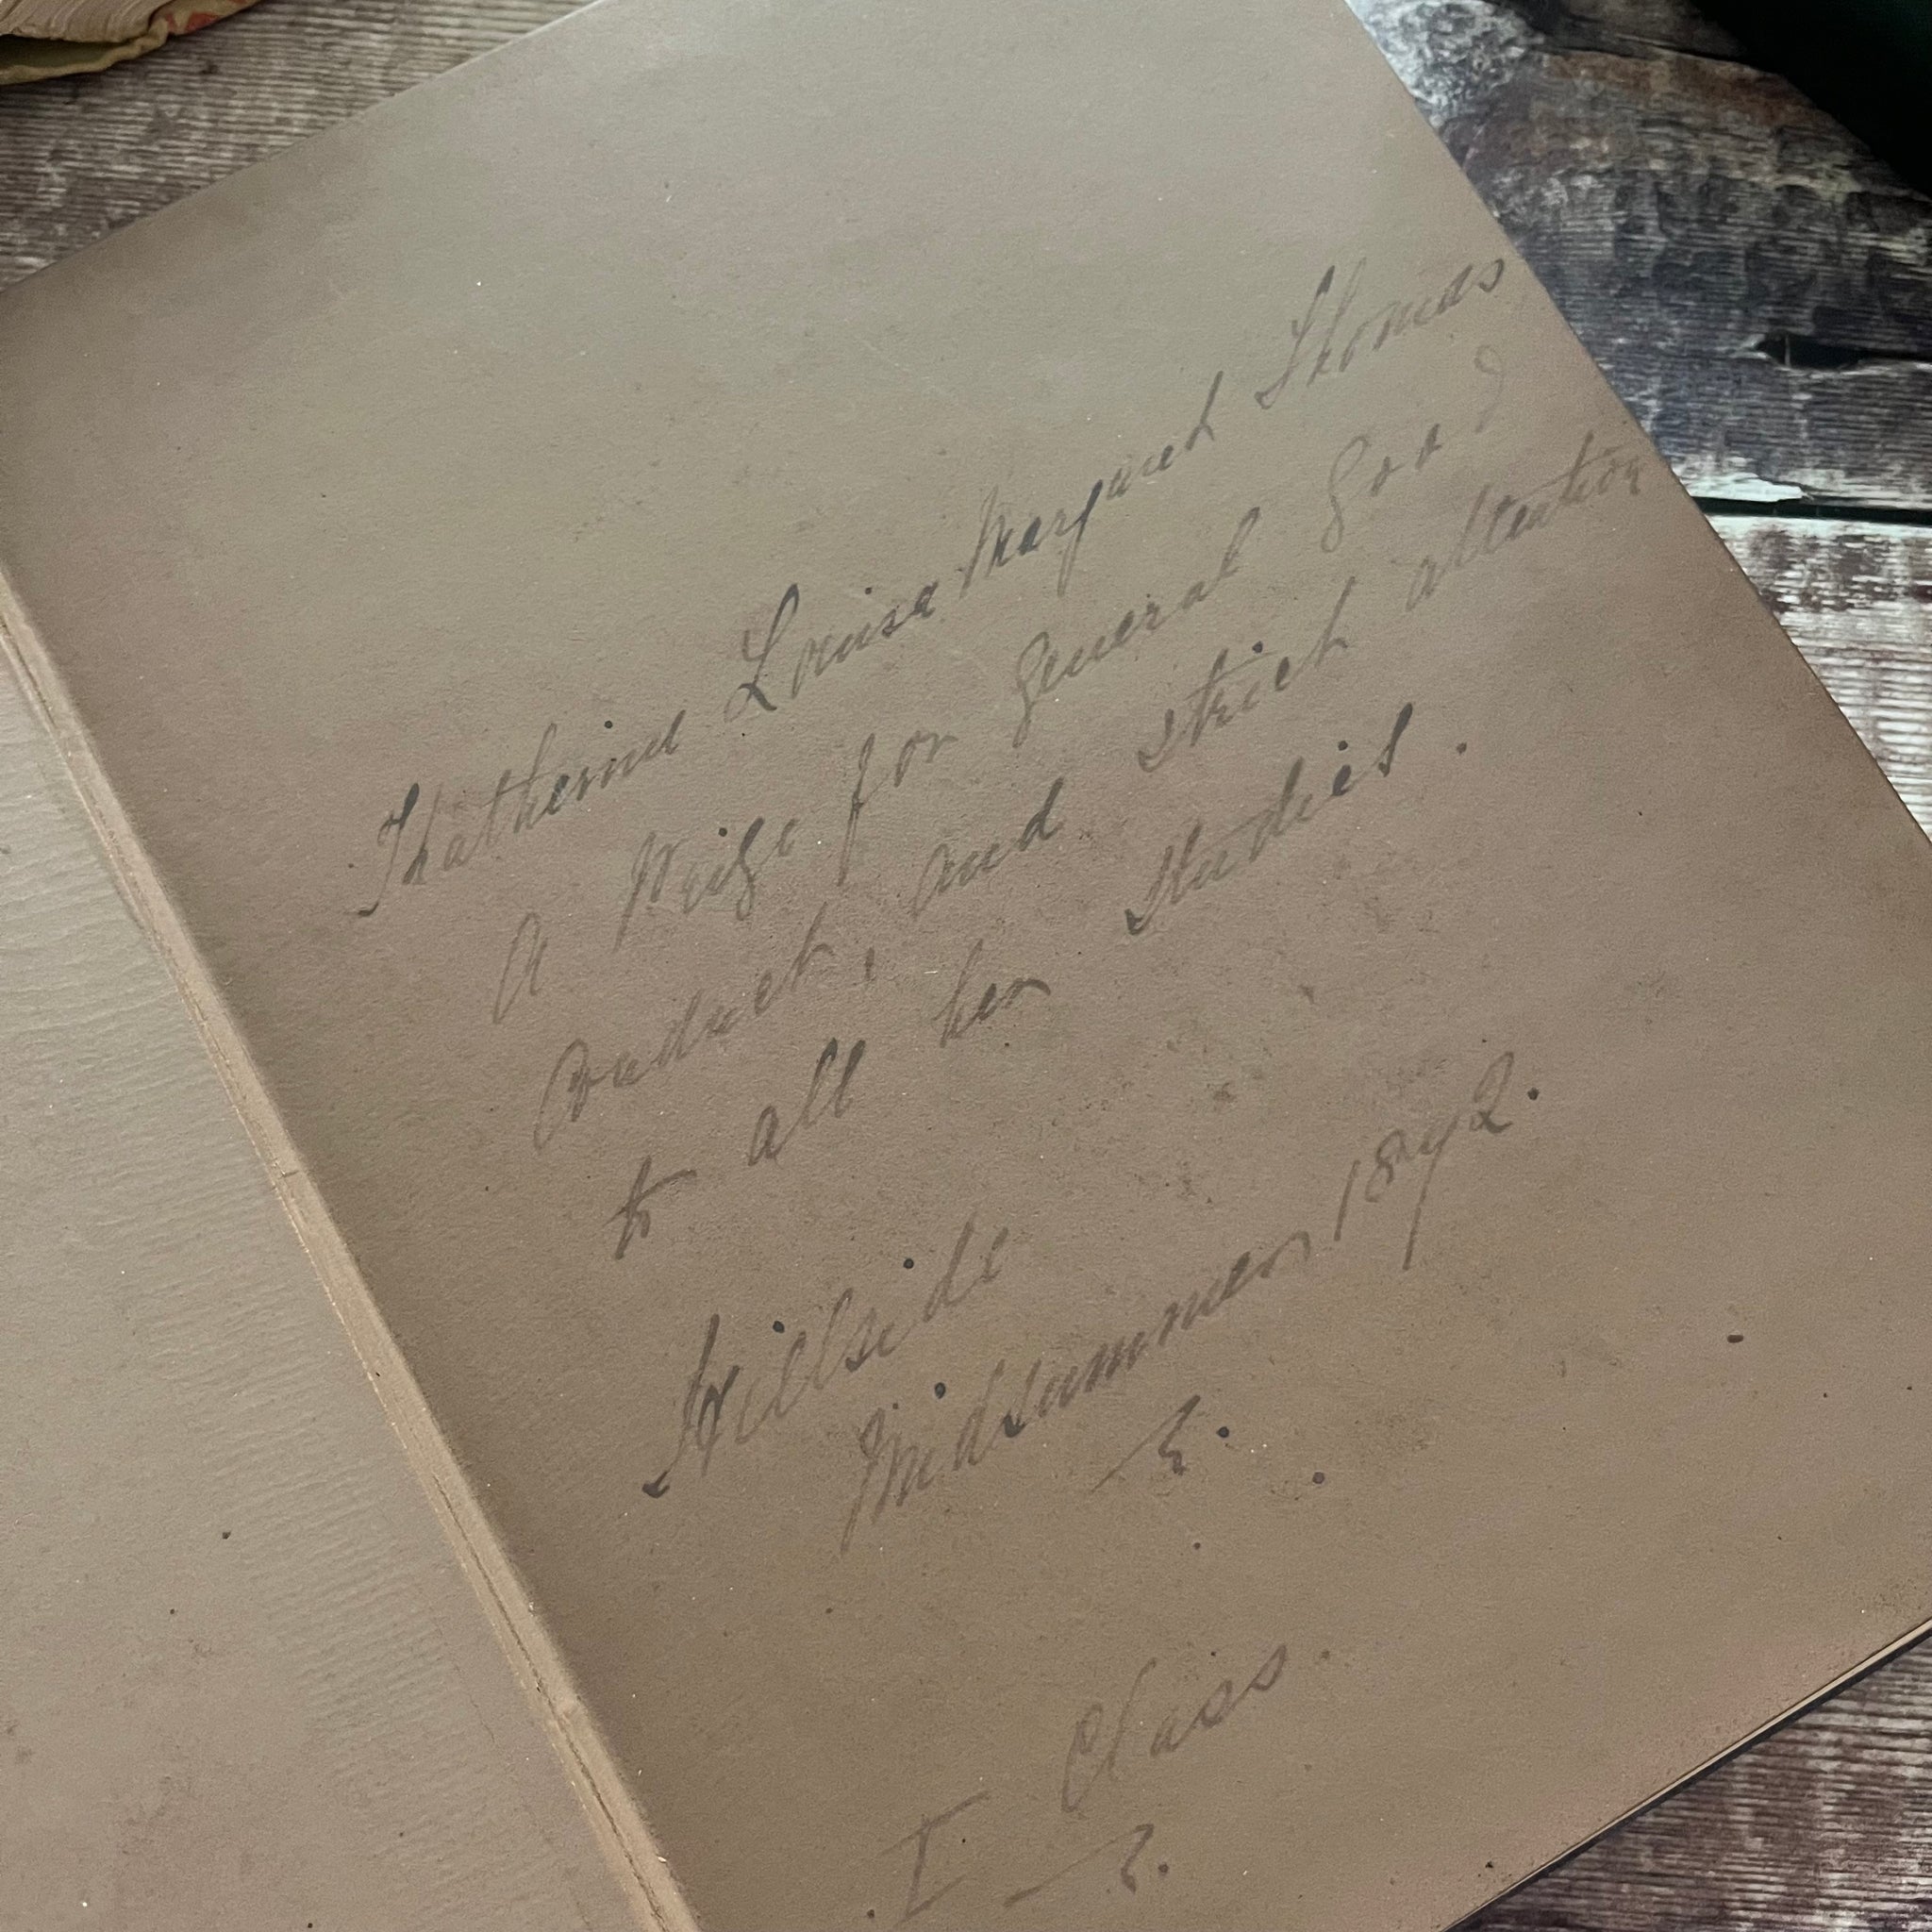 Katherine Louisa Margaret Thomas
A Prize for General good
Conduct, and strict attention
to all her studies.
Hillside
Midsummer 1872.
I Class.